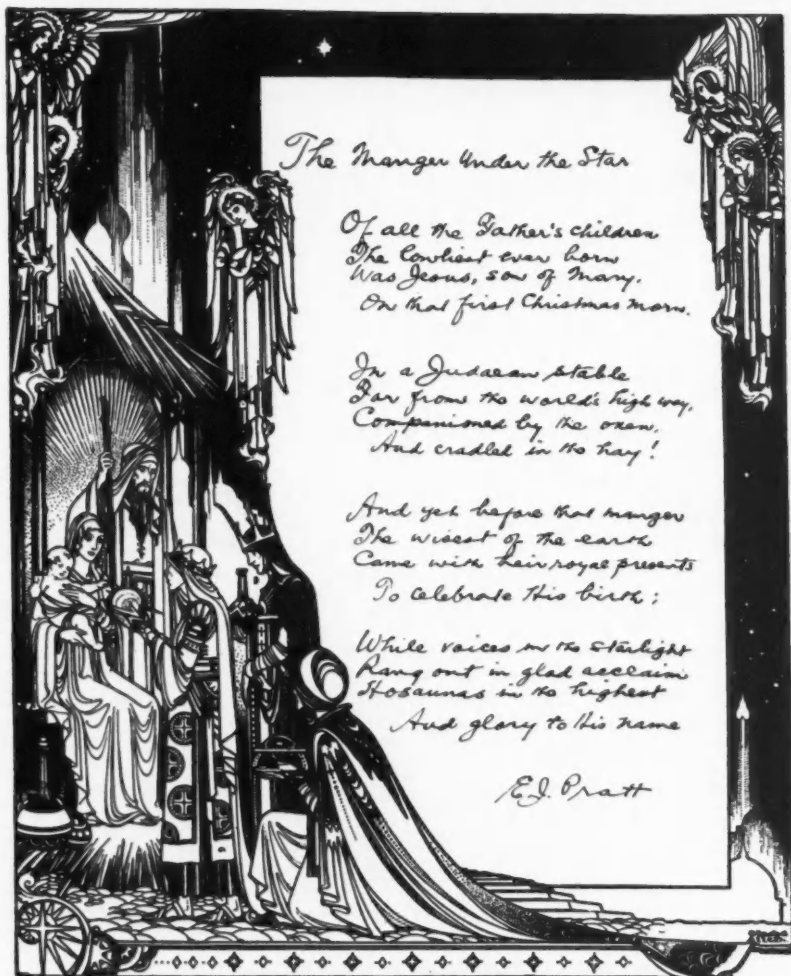 The Manger Under the Star
Of all the Father's children
The lowliest ever born
Was Jesus, son of Mary,
On that first Christmas morn.
In a Judaean stable
Far from the world's high way,
Companioned by the oxen,
And cradled in the hay!
And yet before that manger
The wisest of the earth
Came with their royal presents
To celebrate His birth;
While voices in the starlight
Rang out in glad acclaim
Hosannas in the highest
And glory to His name
E.J. Pratt